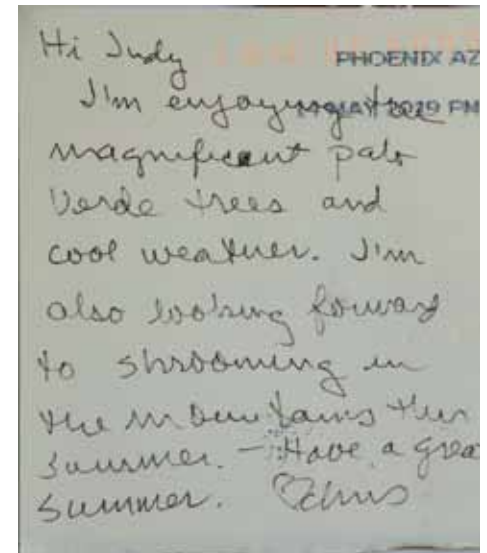 Hi Judy
PHOENIX AZ
I'm enjoying the
MAY 2019 PM
magnificent palo
Verde trees and
cool weather. I'm
also looking forward
to shrooming in
the mountains this
summer. - Have a grea
summer. ♡Chris